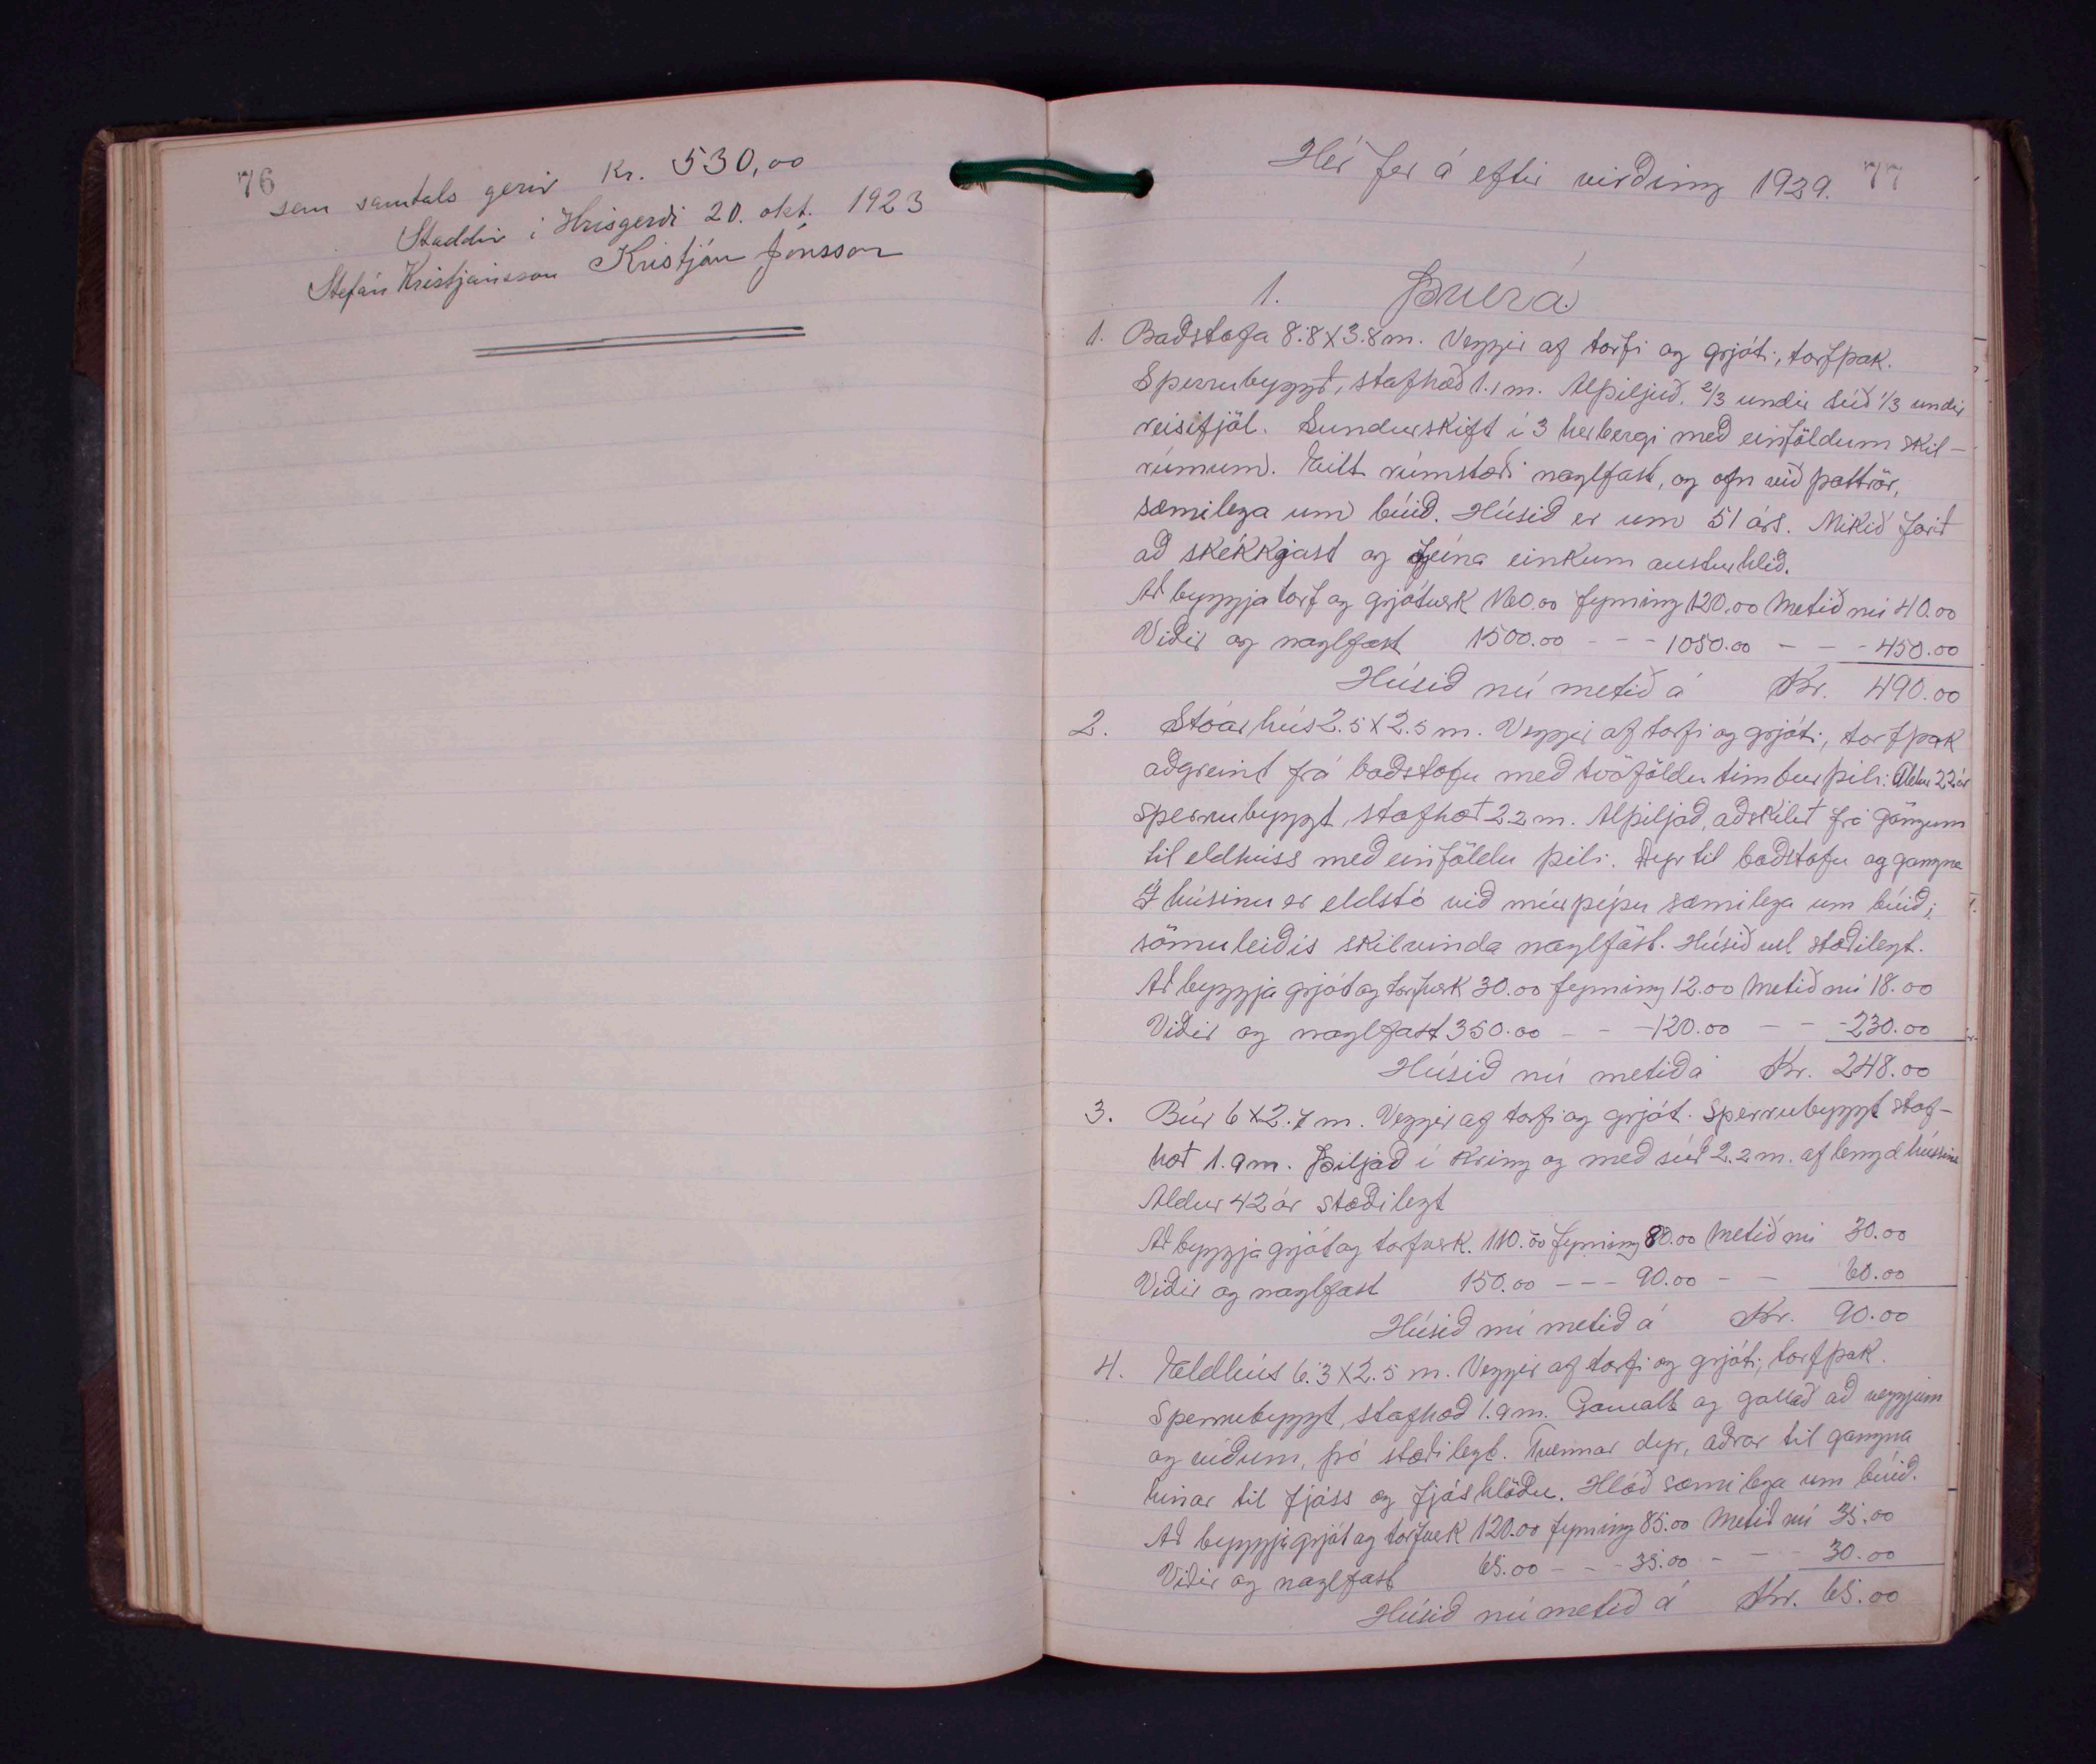 76
sem samtals gerir Kr. 530,00
Staddir í Hrísgerði 20. okt. 1923
Stefán Kristjánsson Kristján Jónsson
77
Hér fer á eftir virðing 1929.
1. Þverá
1. Baðstofa 8.8 X 3.8 m. Veggir af torfi og grjóti, torfþak.
Sperrubyggð, stafhæð 1.1 m. Alþiljuð, 2/3 undir súð 1/3 undir
reisifjöl. Sundurskift í 3 herbergi með einföldum skil-
rúmum. Eitt rúmstæði naglfast, og ofn við pottrör,
sæmilega um búið. Húsið er um 51 árs. Mikið farið
að skekkjast og fúna einkum austurhlið.
Að byggja torf og grjótverk 160.00 fyrning 120.00 Metið nú 40.00
Viðir og naglfast 1500.00 - - - 1050.00 - - - 450.00
Húsið nú metið á Kr. 490.00
2. Stóarhús 2.5 X 2.5 m. Veggir af torfi og grjóti, torfþak
aðgreint frá baðstofu með tvöföldu timburþili: Aldur 22 ár
sperrubyggt, stafhæt 2.2 m. Alþiljað, aðskilit frá göngum
til eldhúss með einföldu þili. Dyr til baðstofu og gangna
Í húsinu er eldstó við múrpípu sæmilega um búið;
sömuleiðis skilvinda naglföst. Húsið vel stæðilegt.
Að byggja grjót og torfverk 30.00 fyrning 12.00 Metið nú 18.00
Viðir og naglfast 350.00 - - - 120.00 - - - 230.00
Húsið nú metið á Kr. 248.00
3. Búr 6 X 2.7 m. Veggir af torfi og grjót. Sperrubyggt staf-
hæt 1.9 m. Þiljað í kring og með súð 2.2 m. af lengd hússins
Aldur 42 ár stæðilegt
Að byggja grjót og torfverk. 110.00 fyrning 80.00 Metið nú 30.00
Viðir og naglfast 150.00 - - - 90.00 - - 60.00
Húsið nú metið á Kr. 90.00
4. Eldhús 6.3 X 2.5 m. Veggir af torfi og grjóti, torfþak.
Sperrubyggt, stafhæð 1.9 m. Gamalt og gallað að veggjum
og viðum, þó stæðilegt. Tvennar dyr, aðrar til gangna
hinar til fjóss og fjóshlöðu. Hlóð sæmilega um búið.
Að byggja grjót og torfverk 120.00 fyrning 85.00 Metið nú 35.00
Viðir og naglfast 65.00 - - - 35.00 - - - 30.00
Húsið nú metið á Kr. 65.00